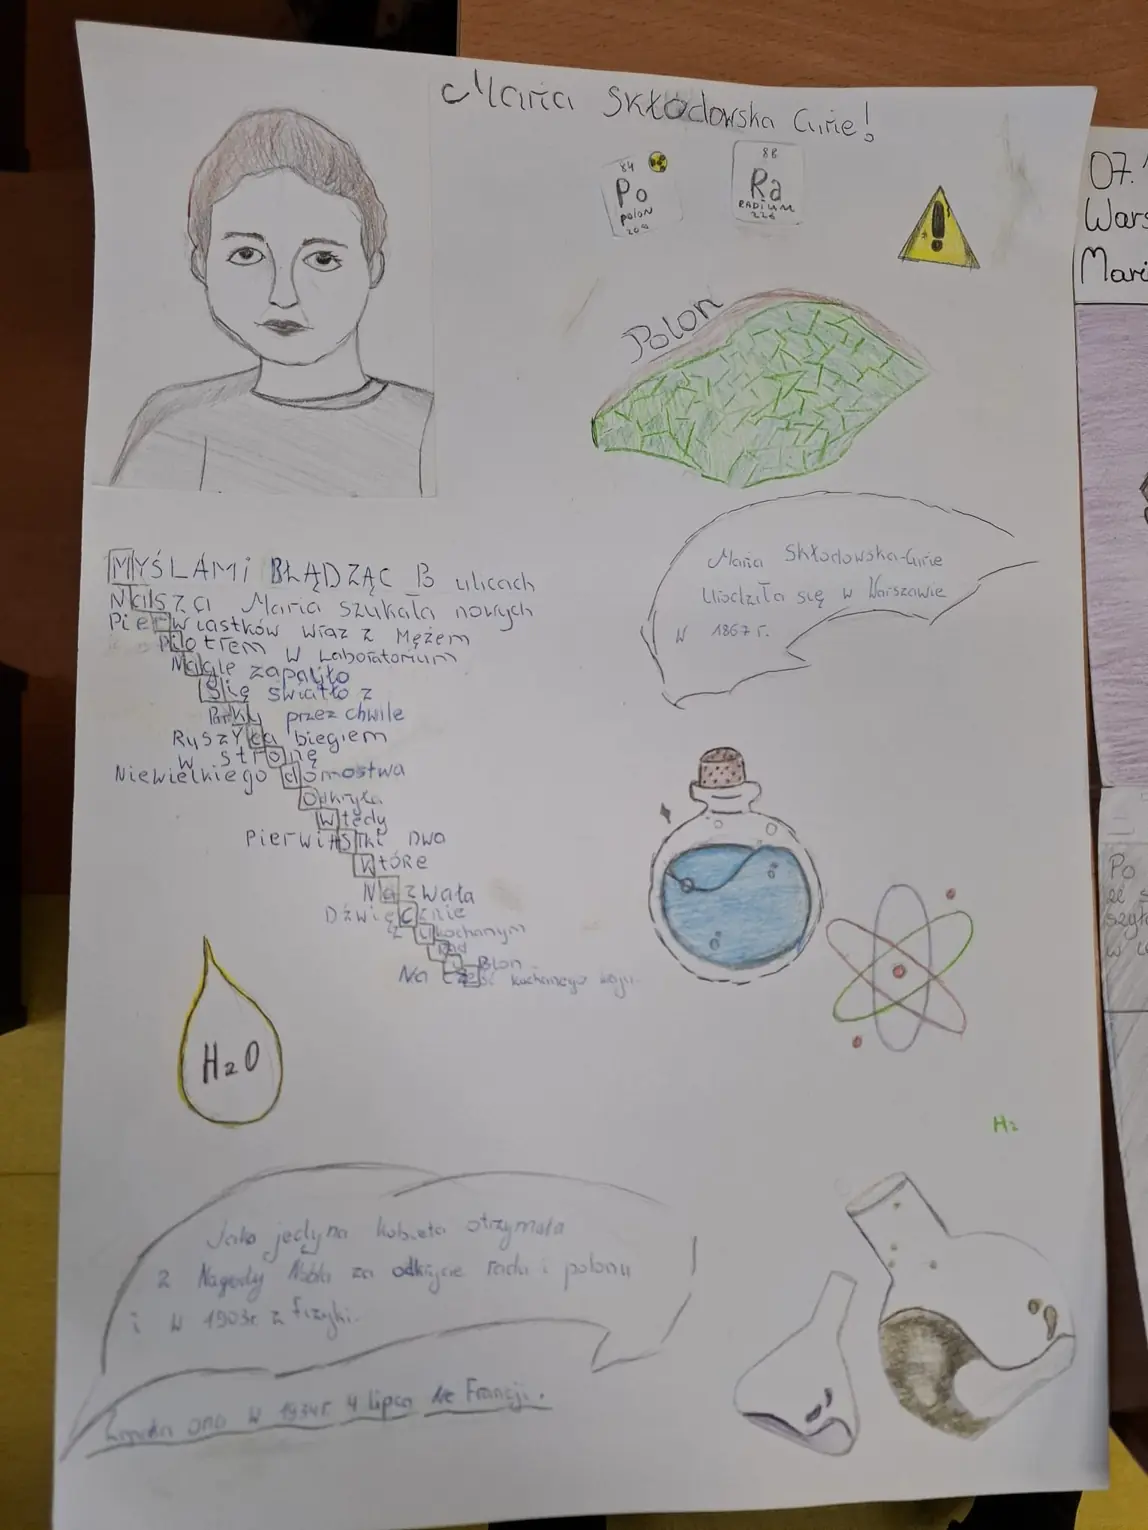 Maria Skłodowska Curie!
84
Po
Polon
88
Ra
RADIUM
226
Polon
MYŚLAMi BŁĄDZĄC B ulicach
Nasza Maria szukała nowych
Pierwiastków wraz z Mężem
Piotrem w Laboratorium
Nagle zapaliło
Się światło z
Parku przez chwile
Ruszyła biegiem
w stronę
Niewielkiego domostwa
Odkryła
Wtedy
PierwiAstki Dwa
KtóRe
Nazwała
Dźwięcznie
z Ukochanym
Rad
Polon
Na cześć kuchanego kraju.
Maria Skłodowska-Curie
Urodziła się w Warszawie
W 1867 r.
H2O
H2
Jako jedyna kobieta otrzymała
2 Nagrody Nobla za odkrycie radu i polonu
i W 1903r. z fizyki.
Zmarła ona W 1934r 4 lipca We Francji.
07.
Wars
Mari
Po
w